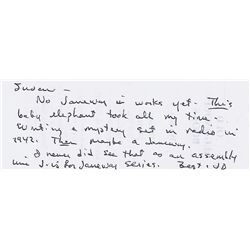 Susan —
No Janeway in works yet. This
baby elephant took all my time.
Writing a mystery set in radio in
1942. Then maybe a Janeway.
I never did see that as an assembly
line J-is for Janeway series. Best, JD